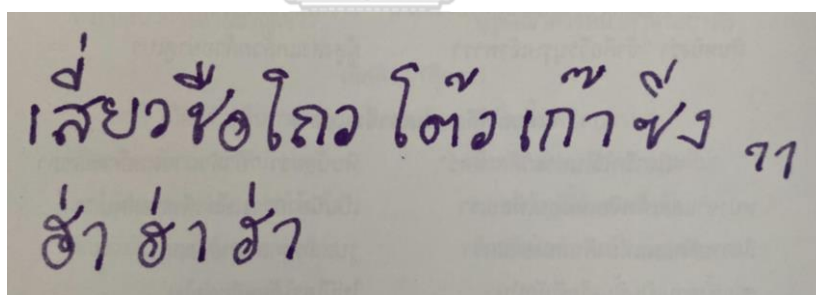 เสี่ยวชือโถว โต๊วเก๊าซึ่ง ๆๆ
ฮ่า ฮ่า ฮ่า